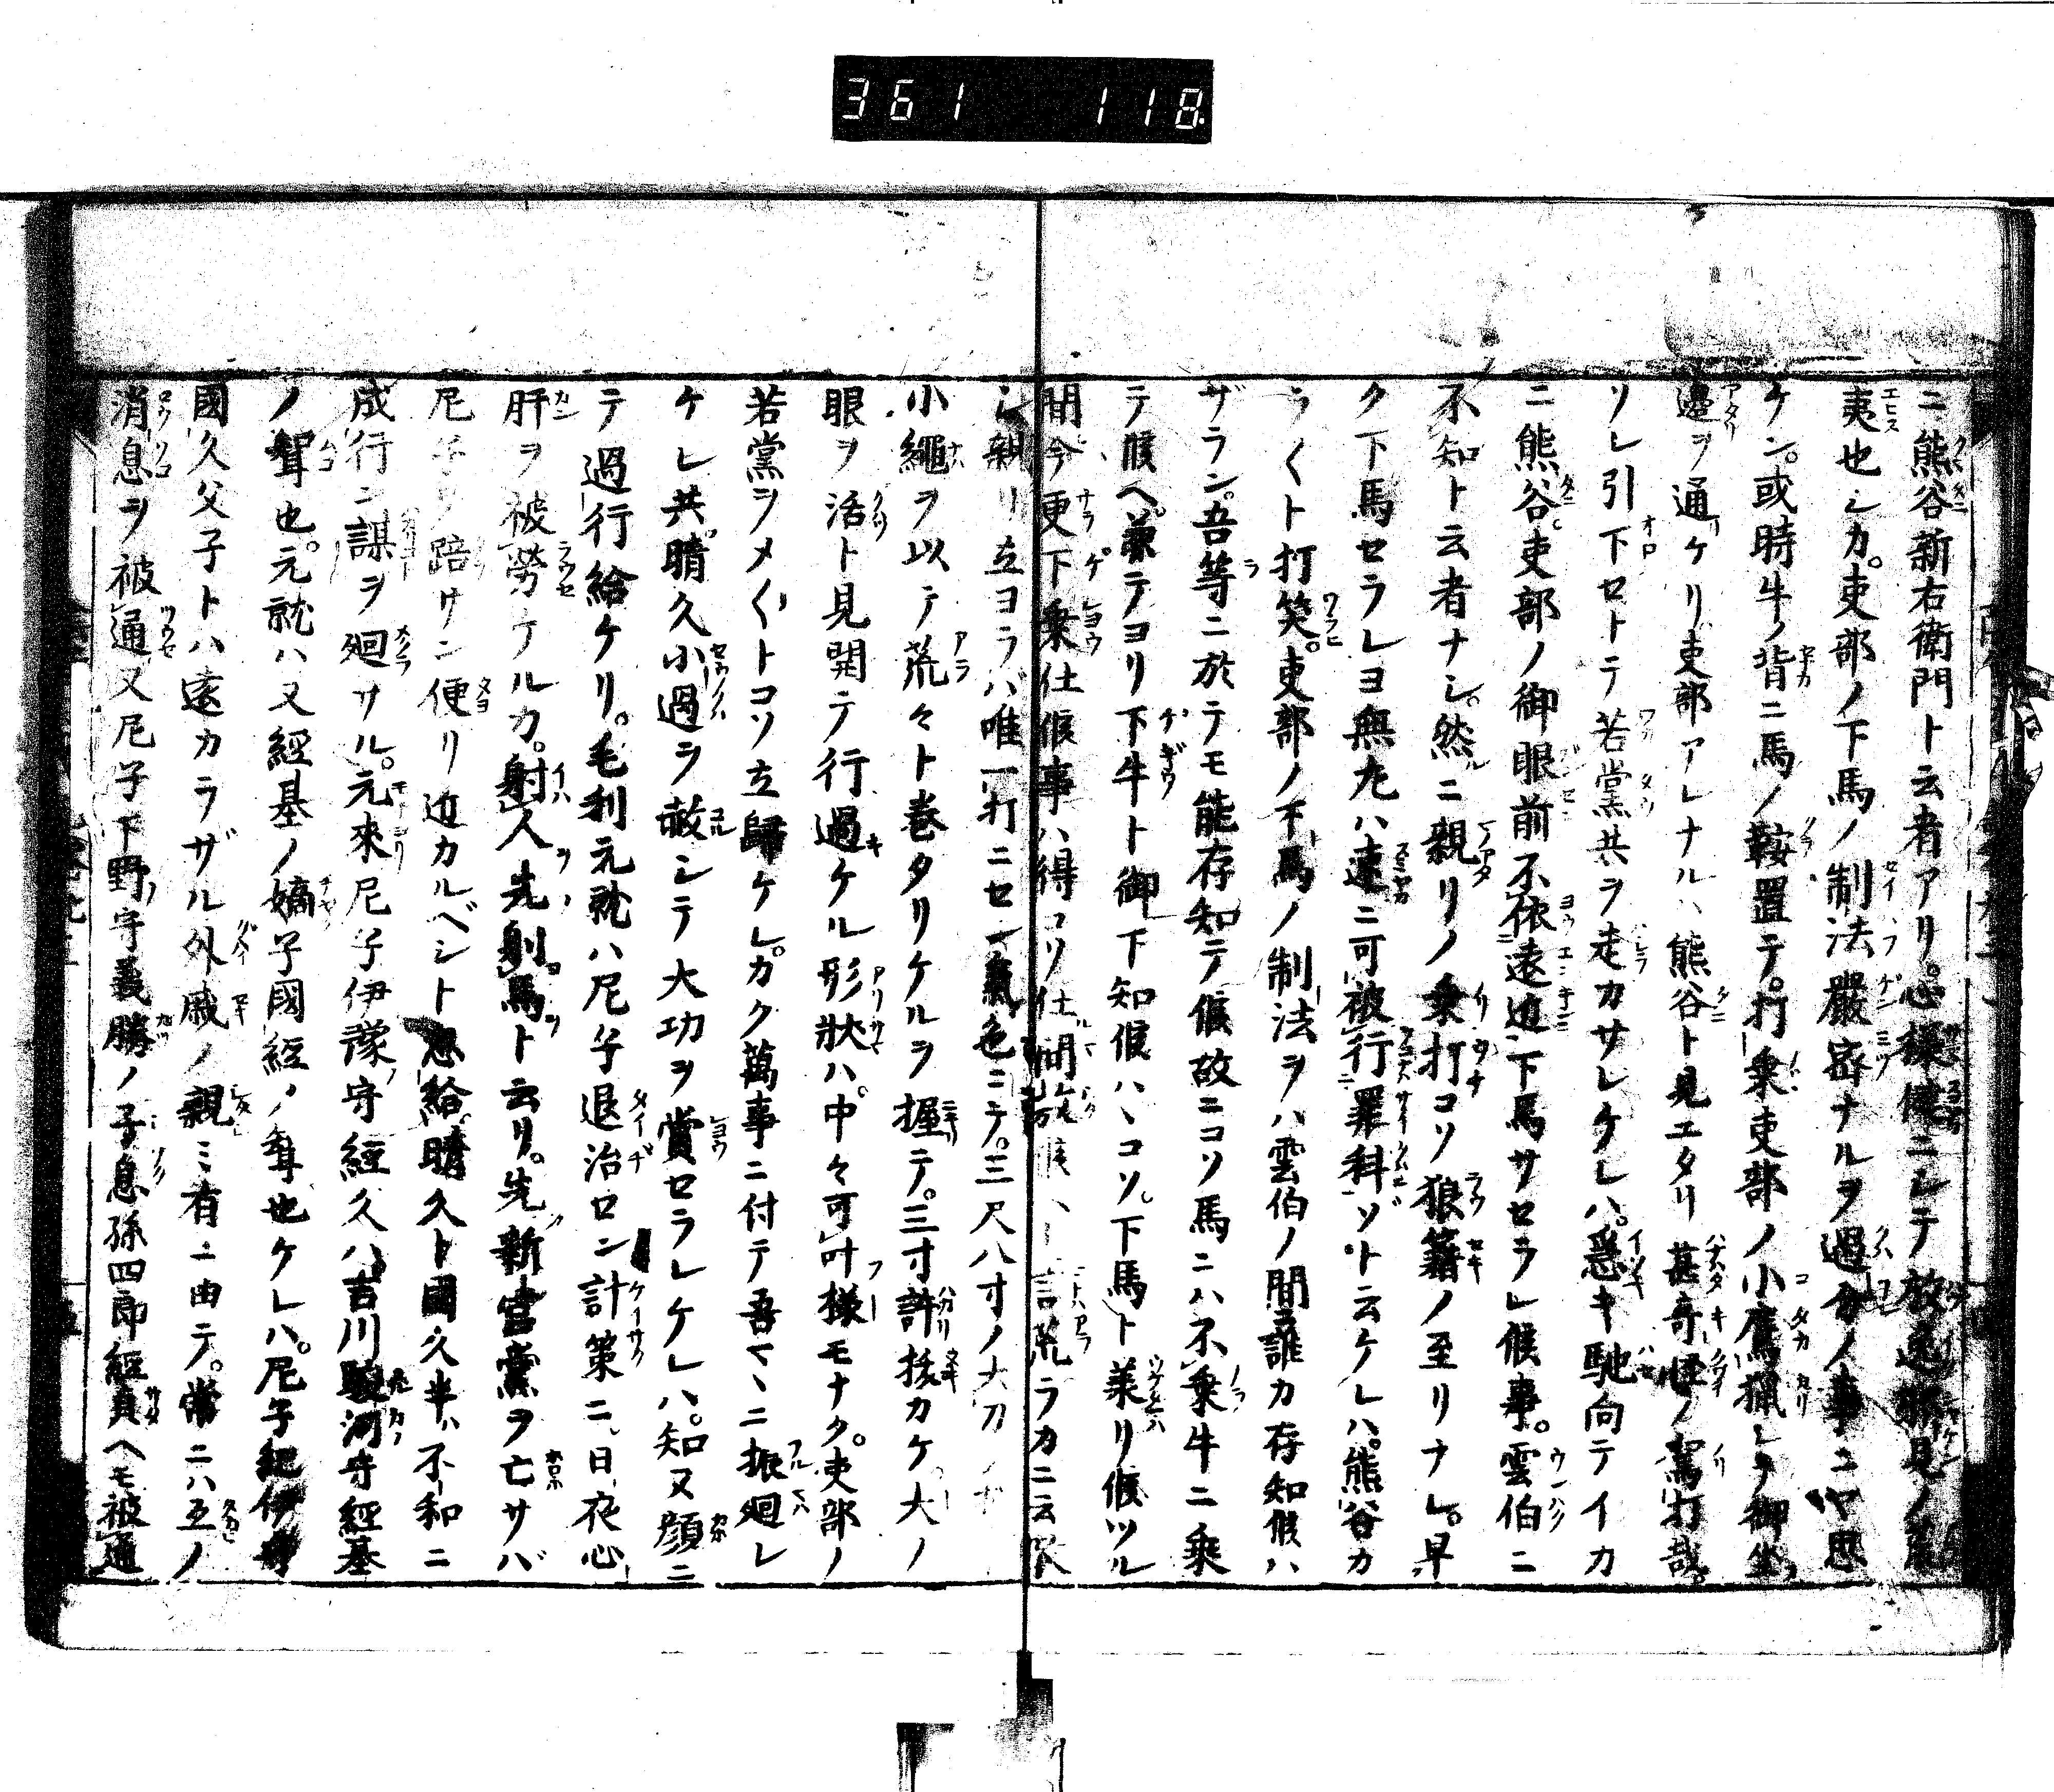 361 118
ニ熊谷新右衛門ト云者アリ。心様健ニシテ放逸邪見ノ荒
夷也シカ。吏部ノ下馬ノ制法嚴密ナルヲ過分ノ事ニヤ思
ケン。或時牛ノ背ニ馬ノ鞍置テ。打乗吏部ノ小鷹狩シテ御坐
邊ヲ通ケリ吏部アレナルハ熊谷ト見エタリ甚奇怪ノ駕打哉。
ソレ引下セトテ若黨共ヲ走カサレケレハ。急キ馳向テイカ
ニ熊谷。吏部ノ御眼前不依遠近下馬サセラレ候事。雲伯ニ
不知ト云者ナシ。然ニ親リノ乗打コソ狼籍ノ至リナレ。早
ク下馬セラレヨ無左ハ速ニ可被行罪科ゾト云ケレハ。熊谷カ
ラ〱ト打笑。吏部ノ下馬ノ制法ヲハ雲伯ノ間誰カ存知候ハ
ザラン。吾等ニ於テモ能存知テ候故ニコソ馬ニハ不乗牛ニ乗
テ候ヘ。兼テヨリ下牛ト御下知候ハヽコソ。下馬ト兼リ候ツル
間今更下乗仕候事ハ得コソ仕間敷候ヘト言荒ラカニ云放
シ親リ立ヨラバ唯一打ニセン氣色ニテ。三尺八寸ノ大刀ノ
小繩ヲ以テ荒々ト巻タリケルヲ握テ。三寸許拔カケ大ノ
眼ヲ活ト見開テ行過ケル形狀ハ。中々可叶様モナク。吏部ノ
若黨ヲメ〱トコソ立歸ケレ。カク萬事ニ付テ吾マヽニ振廻レ
ケレ共。晴久小過ヲ赦シテ大功ヲ賞セラレケレハ。知ヌ顔ニ
テ過行給ケリ。毛利元就ハ尼子退治ロン計策ニ。日夜心
肝ヲ被勞ケルカ。射人先射馬ト云リ。先新宮黨ヲ亡サバ
尼子ヲ踣サン便リ近カルベシト思給。晴久ト國久半ハ不和ニ
成行ン謀ヲ廻サル。元來尼子伊豫守經久ハ吉川駿河守經基
ノ聟也。元就ハ又經基ノ嫡子國經ノ聟也ケレハ。尼子紀伊守
國久父子トハ遠カラザル外戚ノ親ミ有ニ由テ。常ニハ互ノ
消息ヲ被通又尼子下野守義勝ノ子息孫四郎經貞ヘモ被通